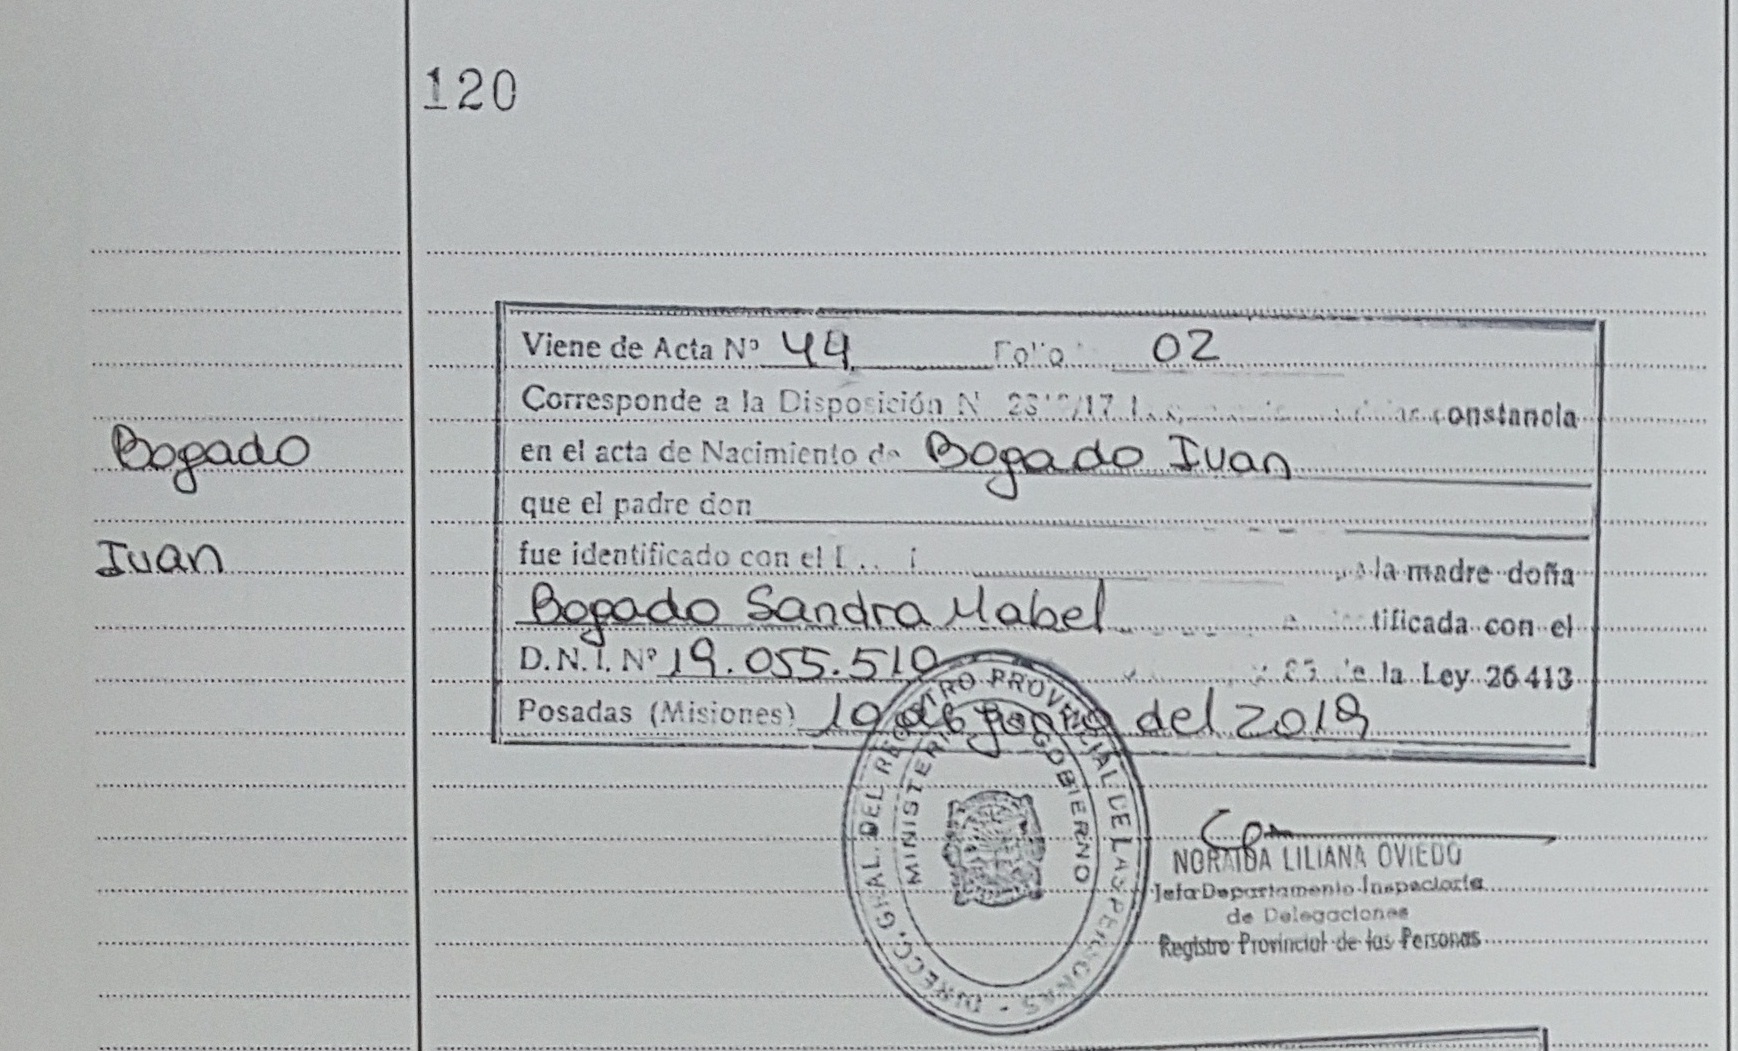 120
Viene de Acta Nº 44 Folio 02
Corresponde a la Disposición N constancia
Bogado
en el acta de Nacimiento de Bogado Ivan
que el padre don
Ivan
fue identificado con el la madre doña
Bogado Sandra Mabel tificada con el
D.N.I. Nº 19.055.510 de la Ley 26413
Posadas (Misiones) 10 de junio del 2019
DIRECC. GRAL. DEL REGISTRO PROVINCIAL DE LAS PERSONAS
MINISTERIO GOBIERNO
NORAIDA LILIANA OVIEDO
Jefa Departamento Inspectoría
de Delegaciones
Registro Provincial de las Personas